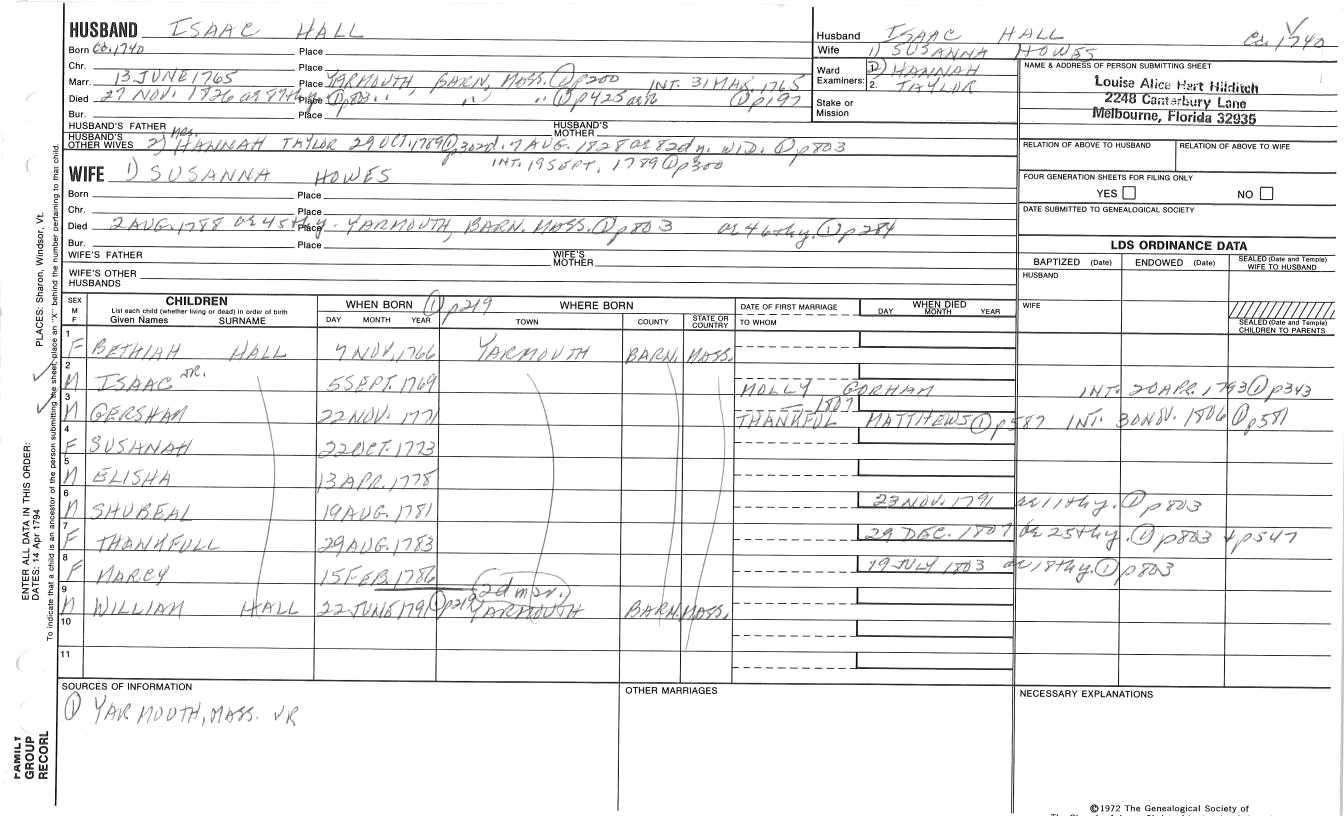 HUSBAND ISAAC HALL
Born Ca. 1740 Place
Chr. Place
Marr. 13 JUNE 1765 Place YARMOUTH, BARN, MASS. ① p200 INT. 31 MAR. 1765 ① p197
Died 27 NOV. 1826 ae 87thy Place ① p803 " " " ① p425 ae
Bur. Place
HUSBAND'S FATHER HUSBAND'S MOTHER
HUSBAND'S OTHER WIVES 2) Mrs. HANNAH TAYLOR 29 OCT. 1789 ① p302 d. 7 AUG. 1828 ae 82dy. WID. ① p803
INT. 19 SEPT. 1789 ① p300
WIFE 1) SUSANNA HOWES
Born Place
Chr. Place
Died 2 AUG. 1788 ae 45thy Place - YARMOUTH, BARN. MASS. ① p803 ae 46thy. ① p284
Bur. Place
WIFE'S FATHER WIFE'S MOTHER
WIFE'S OTHER HUSBANDS
Husband ISAAC HALL Ca. 1740
Wife 1) SUSANNA HOWES
Ward Examiners: 1. 2) HANNAH
2. TAYLOR
Stake or Mission
NAME & ADDRESS OF PERSON SUBMITTING SHEET
Louise Alice Hart Hilditch
2248 Canterbury Lane
Melbourne, Florida 32935
RELATION OF ABOVE TO HUSBAND RELATION OF ABOVE TO WIFE
FOUR GENERATION SHEETS FOR FILING ONLY
YES NO
DATE SUBMITTED TO GENEALOGICAL SOCIETY
LDS ORDINANCE DATA
BAPTIZED (Date) ENDOWED (Date) SEALED (Date and Temple) WIFE TO HUSBAND
HUSBAND
WIFE
SEALED (Date and Temple) CHILDREN TO PARENTS
SEX M F CHILDREN List each child (whether living or dead) in order of birth Given Names SURNAME
WHEN BORN ① p219 DAY MONTH YEAR
WHERE BORN TOWN COUNTY STATE OR COUNTRY
DATE OF FIRST MARRIAGE TO WHOM
WHEN DIED DAY MONTH YEAR
1 F BETHIAH HALL 7 NOV. 1766 YARMOUTH BARN. MASS.
2 M ISAAC JR. 5 SEPT. 1769 MOLLY GORHAM INT. 20 APR. 1793 ① p343
3 M GERSHAM 22 NOV. 1771 1807 THANKFUL MATTHEWS ① p587 INT. 30 NOV. 1806 ① p581
4 F SUSANAH 22 OCT. 1773
5 M ELISHA 13 APR. 1778
6 M SHUBEAL 19 AUG. 1781 23 NOV. 1791 ae 11thy. ① p803
7 F THANKFULL 29 AUG. 1783 29 DEC. 1807 ae 25thy. ① p803 + p547
8 F MARCY 15 FEB. 1786 19 JULY 1803 ae 18thy. ① p803
(2d mar.)
9 M WILLIAM HALL 22 JUNE 1791 ① p219 YARMOUTH BARN. MASS.
10
11
SOURCES OF INFORMATION
① YARMOUTH, MASS. VR
OTHER MARRIAGES
NECESSARY EXPLANATIONS
©1972 The Genealogical Society of
PLACES: Sharon, Windsor, Vt.
ENTER ALL DATA IN THIS ORDER:
DATES: 14 Apr 1794
To indicate that a child is an ancestor of the person submitting the sheet, place an "X" behind the number pertaining to that child.
FAMILY GROUP RECORD